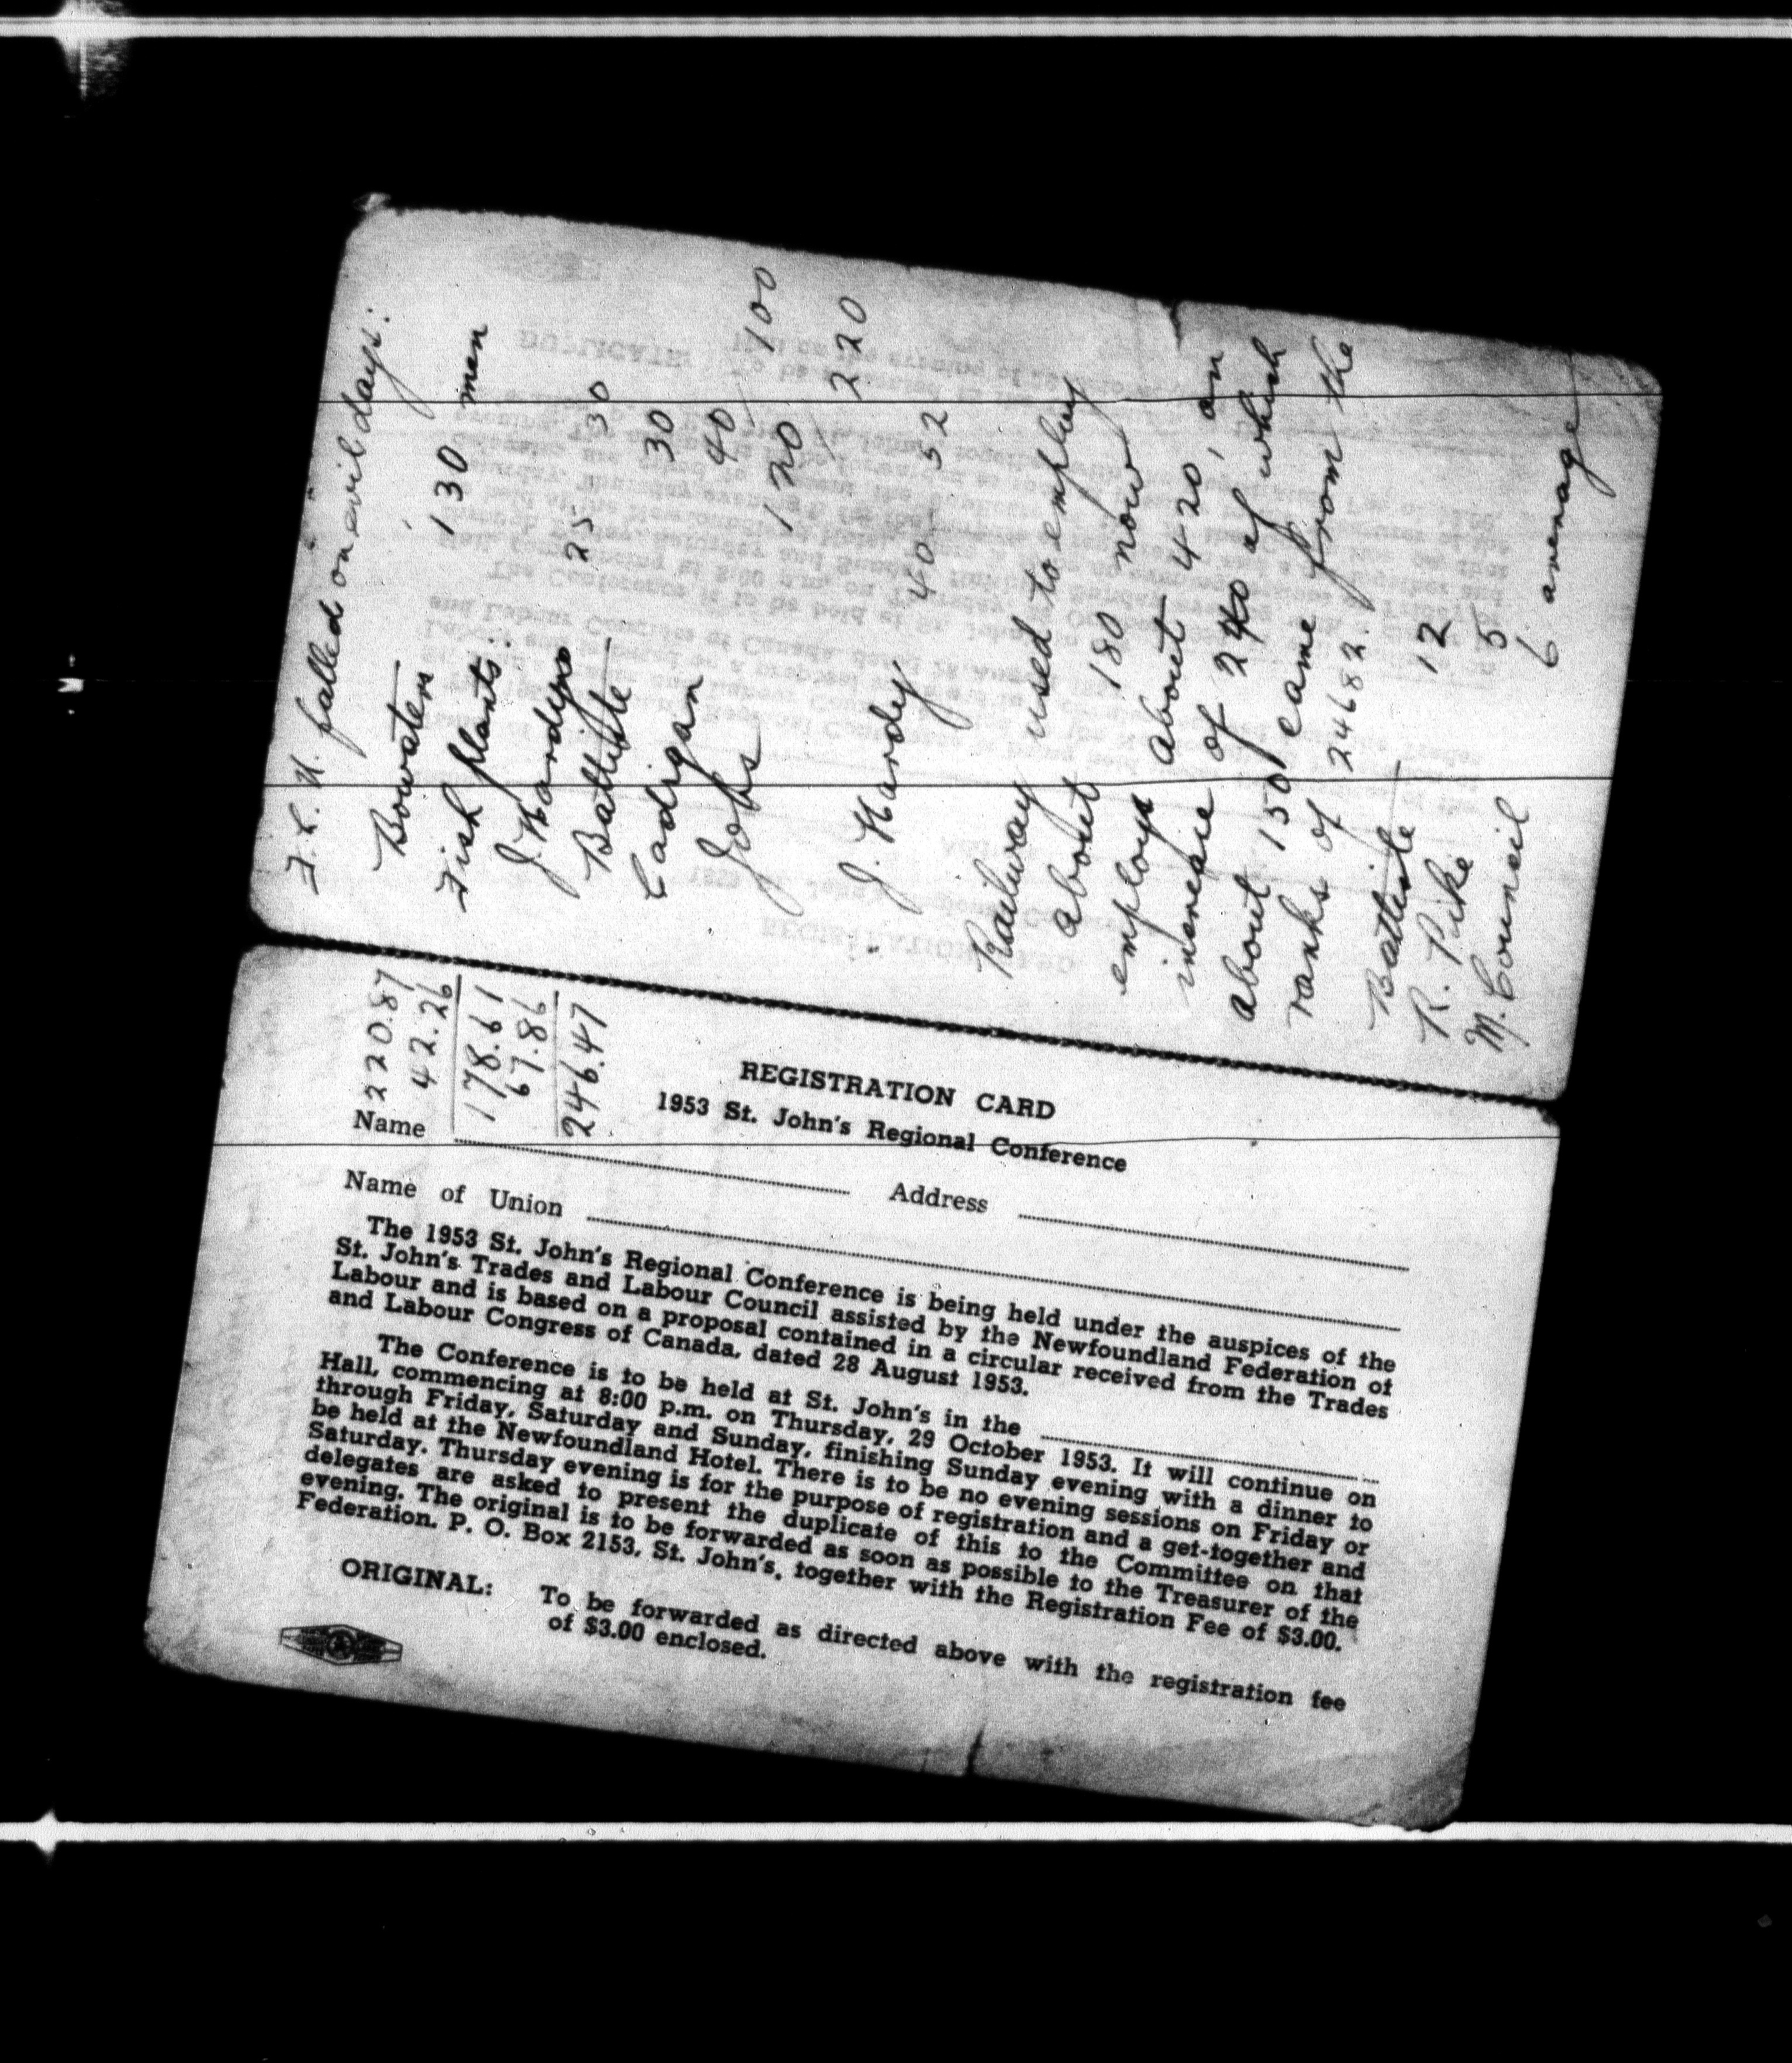 F. L. U. falled on evil days:
Bowaters 130 men
Fish plants:
J. Hardy 25 30
Battiste 30
Cadigan 40
Jobs 120 100
220
J. Hardy 40 52
Railway used to employ
about 180 now
employs about 420, an
increase of 240 of which
about 150 came from the
ranks of 24682.
Battiste 12
R. Pike 5
M. Council 6 average
220.87
42.26
178.61
67.86
246.47
REGISTRATION CARD
1953 St. John's Regional Conference
Name Address
Name of Union
The 1953 St. John's Regional Conference is being held under the auspices of the
St. John's Trades and Labour Council assisted by the Newfoundland Federation of
Labour and is based on a proposal contained in a circular received from the Trades
and Labour Congress of Canada, dated 28 August 1953.
The Conference is to be held at St. John's in the
Hall, commencing at 8:00 p.m. on Thursday, 29 October 1953. It will continue on
through Friday, Saturday and Sunday, finishing Sunday evening with a dinner to
be held at the Newfoundland Hotel. There is to be no evening sessions on Friday or
Saturday. Thursday evening is for the purpose of registration and a get-together and
delegates are asked to present the duplicate of this to the Committee on that
evening. The original is to be forwarded as soon as possible to the Treasurer of the
Federation. P. O. Box 2153, St. John's, together with the Registration Fee of $3.00.
ORIGINAL: To be forwarded as directed above with the registration fee
of $3.00 enclosed.